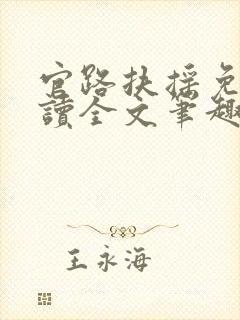 官路扶摇免
读全文笔趣
王永海